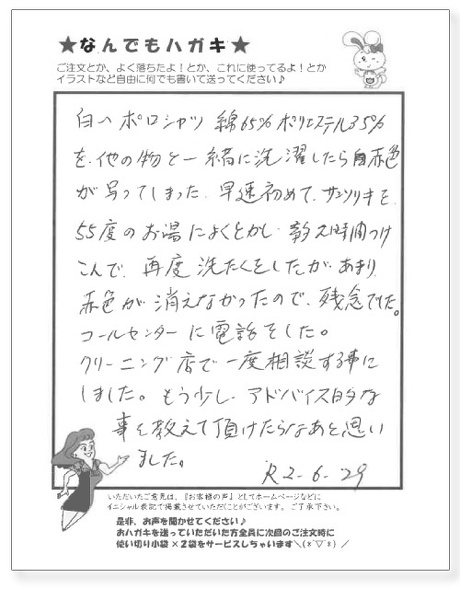 ★なんでもハガキ★
ご注文とか、よく落ちたよ！とか、これに使ってるよ！とか
イラストなど自由に何でも書いて送ってください♪
白いポロシャツ 綿65% ポリエステル35%
を、他の物と一緒に洗濯したら赤色
が写ってしまった。早速初めて、サンソリキを、
55度のお湯によくとかし、数え時間つけ
こんで、再度洗たくをしたが、あまり
赤色が消えなかったので、残念でした。
コールセンターに電話をした。
クリーニング店で一度相談する事に
しました。もう少し、アドバイス的な
事を教えて頂けたらなあと思い
ました。
R2-6-29
いただいたご意見は、『お客様の声』としてホームページなどに
イニシャル表記で掲載させていただくことがございます。ご了承下さい。
是非、お声を聞かせてください♪
おハガキを送っていただいた方全員に次回のご注文時に
使い切り小袋×2袋をサービスしちゃいます＼(*´▽`*)／